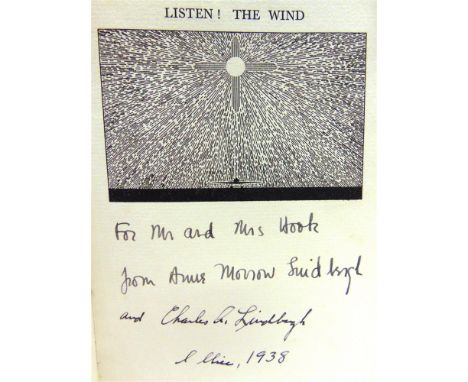 LISTEN! THE WIND
For Mr and Mrs Hook
from Anne Morrow Lindbergh
and Charles A. Lindbergh
1938